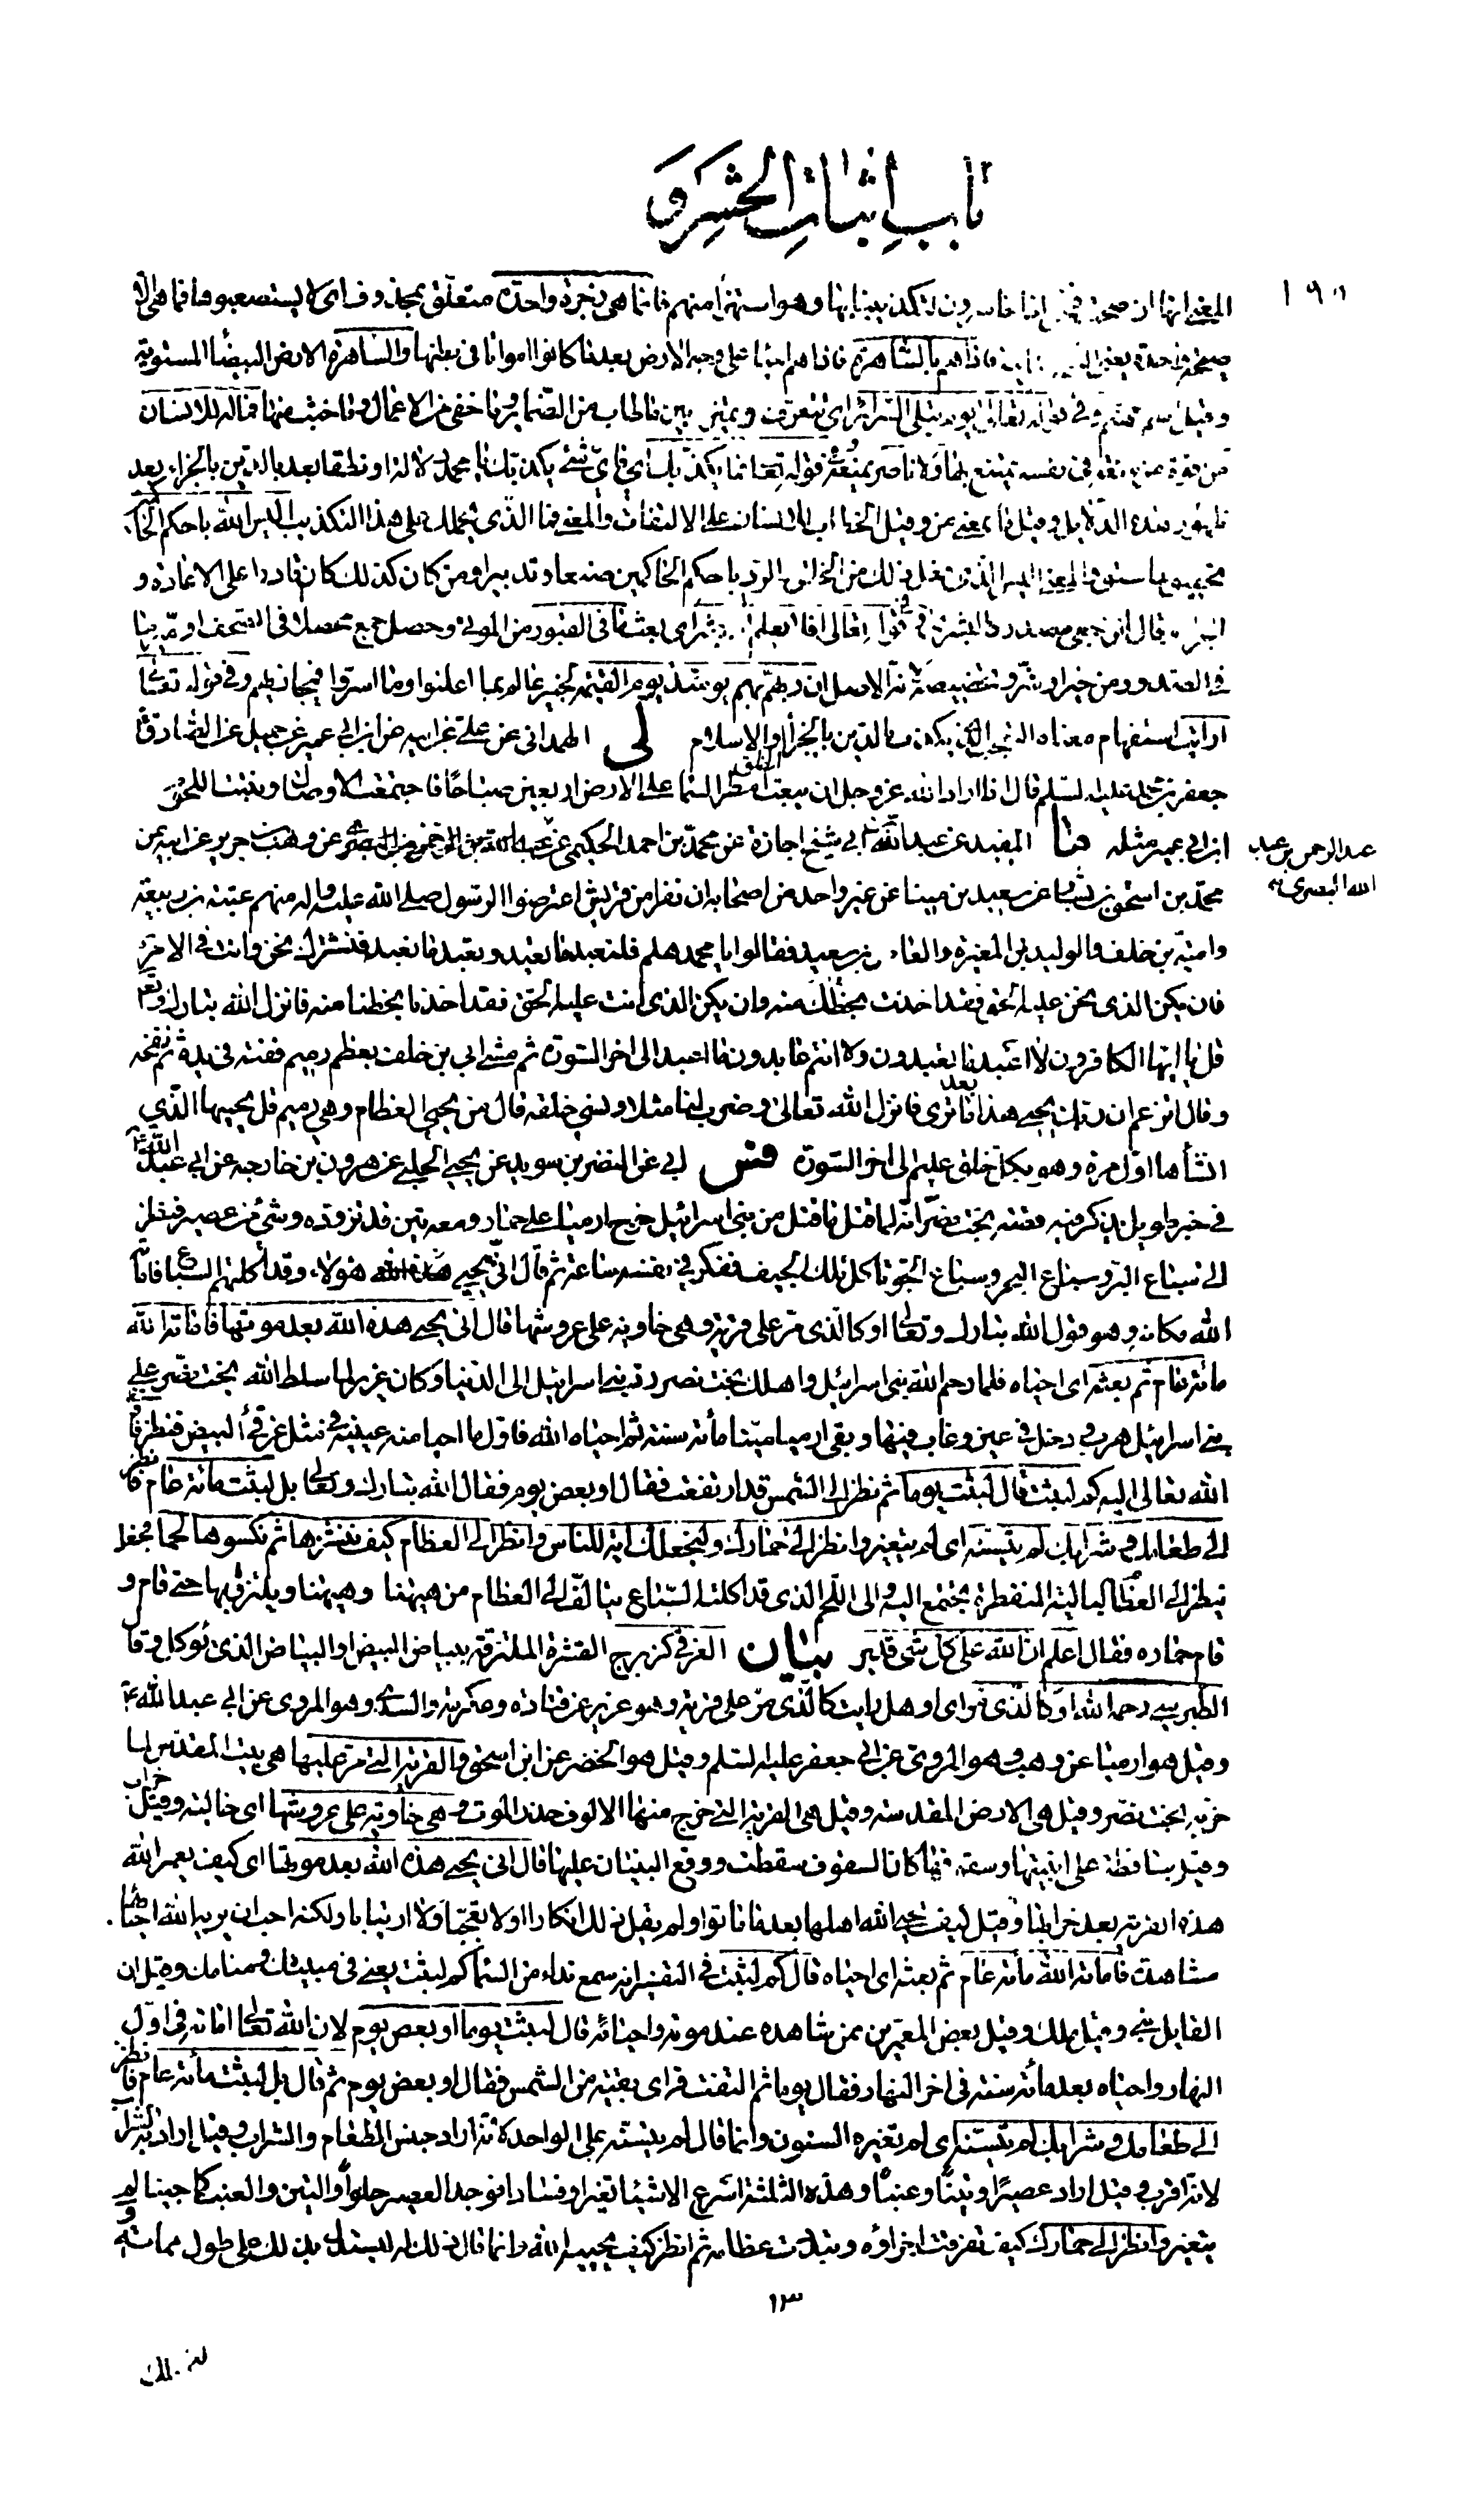 باب اثبات الحشر و
١٩١
المعنى انها ان صحت فنحن اذا خاسرون لتكذيبنا بها وهو استهزاء منهم فانما هي زجرة واحدة متعلق بمحذوف اى لا يستصعبوها فما هي الا
صيحة واحدة يعنى فاذا هم بالساهرة فاذا هم احياء على وجه الارض بعد ما كانوا امواتا فى بطنها والساهرة الارض البيضاء المستوية
وقيل اسم جهنم وفى قوله تعالى يوم تبلى السرائر اى تتعرف ويميز بين ما طاب من الضماير وما خفى من الاعمال وما خبث منها فماله للانسان
من قوة من منعة فى نفسه يمتنع بها ولا ناصر يمنعه وفى قوله تعالى فما يكذبك اى فاى شئ يكذبك يا محمد دلالة او نطقا بعد بالدين بالجزاء بعد
ظهور هذه الدلايل وقيل ما بمعنى من وقيل الخطاب للانسان على الالتفات والمعنى فما الذى يحملك على هذا التكذيب اليس الله باحكم الحاكمين
تحقيق لما سبق والمعنى اليس الذى فعل ذلك من الخلق والرد باحكم الحاكمين صنعا وتدبيرا ومن كان كذلك كان قادرا على الاعادة و
الجزاء وفى قوله تعالى افلا يعلم اذا بعثر اى بعث ما فى القبور من الموتى وحصل جمع محصلا فى الصحف او ميز ما
فى الصدور من خير او شر وتخصيصه لانه الاصل ان ربهم بهم يومئذ يوم القيمة لخبير عالم بما اعلنوا وما اسروا فيجازيهم وفى قوله تعالى
ارايت استفهام معناه التعجب الذى يكذب بالدين بالجزاء او الاسلام لى الهمدانى عن على عن ابيه عن ابن ابى عمير عن جميل عن الصادق
جعفر بن محمد عليه السلم قال اذا اراد الله عز وجل ان يبعث الخلق امطر السماء على الارض اربعين صباحا فاجتمعت الاوصال ونبتت اللحوم
ابن ابى عمير مثله جا المفيد عن عبد الله بن ابى شيخ اجازة عن محمد بن احمد الحكيمى عن عبد الرحمن بن عبد الله البصرى عن وهب بن جرير عن ابيه عن
عبد الرحمن بن عبد
الله البصرى
محمد بن اسحق بن يسار عن سعيد بن مينا عن غير واحد من اصحابه ان نفرا من قريش اعترضوا الرسول صلى الله عليه واله منهم عتبة بن ربيعة
وامية بن خلف والوليد بن المغيرة والعاص بن سعيد فقالوا يا محمد هلم فلنعبد ما تعبد وتعبد ما نعبد فنشترك نحن وانت فى الامر
فان يكن الذى نحن عليه الحق فقد اخذت بحظك منه وان يكن الذى انت عليه الحق فقد اخذنا بحظنا منه فانزل الله تبارك وتعالى
قل يا ايها الكافرون لا اعبد ما تعبدون ولا انتم عابدون ما اعبد الى اخر السورة ثم مشى ابى بن خلف بعظم رميم ففته فى يده ثم نفخه
وقال اتزعم ان ربك يحيى هذا بعد ما ترى فانزل الله تعالى وضرب لنا مثلا ونسى خلقه قال من يحيى العظام وهى رميم قل يحييها الذى
انشأها اول مرة وهو بكل خلق عليم الى اخر السورة فس ابى عن النضر بن سويد عن يحيى الحلبى عن هرون بن خارجة عن ابى عبد الله
فى خبر طويل يذكر فيه قصة بخت نصر انه لما قتل ما قتل من بنى اسرائيل خرج ارميا على حمار ومعه تين قد تزوده وشئ من عصير فنظر
الى سباع البر وسباع البحر وسباع الجو تاكل تلك الجيف ففكر فى نفسه ساعة ثم قال انى يحيى الله هؤلاء وقد اكلتهم السباع فاماته
الله مكانه وهو قول الله تبارك وتعالى او كالذى مر على قرية وهى خاوية على عروشها قال انى يحيى هذه الله بعد موتها فاماته الله
مائة عام ثم بعثه اى احياه فلما رحم الله بنى اسرائيل واهلك بخت نصر رد بنى اسرائيل الى الدنيا وكان عزير لما سلط الله بخت نصر على
بنى اسرائيل هرب ودخل فى عين وغاب فيها وبقى ارميا ميتا مائة سنة ثم احياه الله فاول ما احيا منه عينيه فى مثل غرقئ البيض فنظر فاوحى
الله تعالى اليه كم لبثت قال لبثت يوما ثم نظر الى الشمس قد ارتفعت فقال او بعض يوم فقال الله تبارك وتعالى بل لبثت مائة عام فانظر
الى طعامك وشرابك لم يتسنه اى لم يتغير وانظر الى حمارك ولنجعلك اية للناس وانظر الى العظام كيف ننشزها ثم نكسوها لحما فجعل
ينظر الى العظام البالية المنفطرة تجتمع اليه والى اللحم الذى قد اكلته السباع يتالف الى العظام من هيهنا وهيهنا ويلتزق بها حتى قام و
قام حماره فقال اعلم ان الله على كل شئ قدير بيان الغرقئ كزبرج القشرة الملتزقة ببياض البيض او البياض الذى يؤكل وقال
الطبرسى رحمه الله او كالذى مر اى او هل رايت كالذى مر على قرية وهو عزير عن قتادة وعكرمة والسدى وهو المروى عن ابى عبد الله ع
وقيل هو ارميا عن وهب وهو المروى عن ابى جعفر عليه السلم وقيل هو الخضر عن ابن اسحق والقرية التى مر عليها هى بيت المقدس لما
خربه بخت نصر وقيل هى الارض المقدسة وقيل هى القرية التى خرج منها الالوف حذر الموت وهى خاوية على عروشها اى خالية وقيل خراب
وقيل ساقطة على ابنيتها وسقوفها كان السقوف سقطت ووقع البنيان عليها قال انى يحيى هذه الله بعد موتها اى كيف يعمر الله
هذه القرية بعد خرابها وقيل كيف يحيى الله اهلها بعد ما ماتوا ولم يقل ذلك انكارا ولا تعجبا ولا ارتيابا ولكنه احب ان يريه الله احياها
مشاهدة فاماته الله مائة عام ثم بعثه اى احياه قال كم لبثت فى التفسير انه سمع نداء من السماء كم لبثت يعنى فى مبيتك ومنامك وقيل ان
القايل نبى وقيل ملك وقيل بعض المعمرين ممن شاهده عند موته واحيائه قال لبثت يوما او بعض يوم لان الله تعالى اماته فى اول
النهار واحياه بعد مائة سنة فى اخر النهار فقال يوما ثم التفت فراى بقية من الشمس فقال او بعض يوم ثم قال بل لبثت مائة عام فانظر
الى طعامك وشرابك لم يتسنه اى لم تغيره السنون وانما قال لم يتسنه على الواحد لانه اراد جنس الطعام والشراب وقيل اراد به الشراب
لانه اقرب وقيل اراد عصيرا وتينا وعنبا وهذه الثلثة اسرع الاشياء تغيرا وفسادا فوجد العصير حلوا والتين والعنب كما جنيا لم
يتغير وانظر الى حمارك كيف تفرقت اجزاؤه وتبددت عظامه ثم انظر كيف يحييه الله وانما قال ذلك له ليستدل بذلك على طول مماته و
١٣